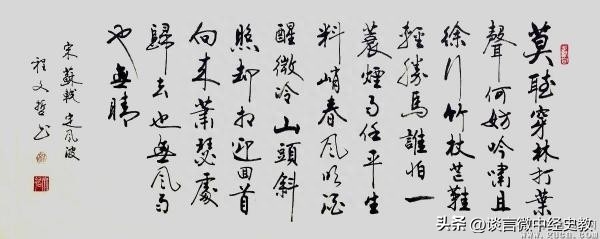 莫聽穿林打葉
聲何妨吟嘯且
徐行竹杖芒鞋
輕勝馬誰怕一
蓑煙雨任平生
料峭春風吹酒
醒微冷山頭斜
照卻相迎回首
向來蕭瑟處
歸去也無風雨
也無晴
宋蘇軾定風波
程文哲书
头条 @谈言微中经史教